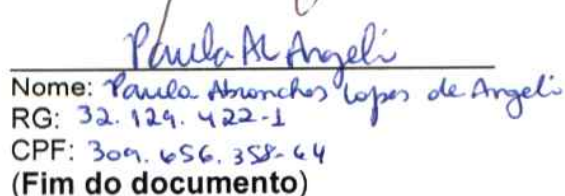 Paula AL Angeli
Nome: Paula Abranches Lopes de Angeli
RG: 32.129.422-1
CPF: 309.656.358-64
(Fim do documento)